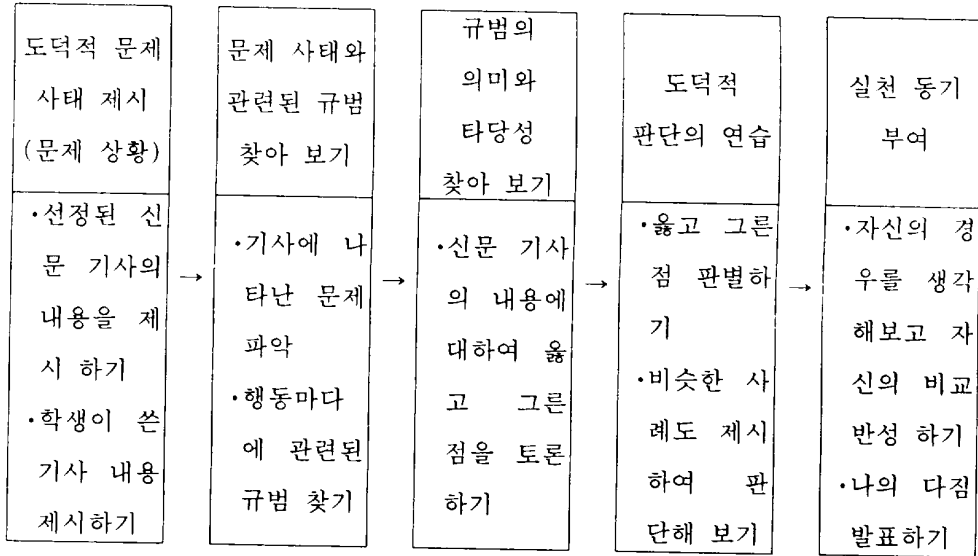 도덕적 문제
사태 제시
(문제 상황)
·선정된 신
문 기사의
내용을 제
시 하기
·학생이 쓴
기사 내용
제시하기
→
문제 사태와
관련된 규범
찾아 보기
·기사에 나
타난 문제
파악
·행동마다
에 관련된
규범 찾기
→
규범의
의미와
타당성
찾아 보기
·신문 기사
의 내용에
대하여 옳
고 그른
점을 토론
하기
→
도덕적
판단의 연습
·옳고 그른
점 판별하
기
·비슷한 사
례도 제시
하여 판
단해 보기
→
실천 동기
부여
·자신의 경
우를 생각
해보고 자
신의 비교
반성 하기
·나의 다짐
발표하기